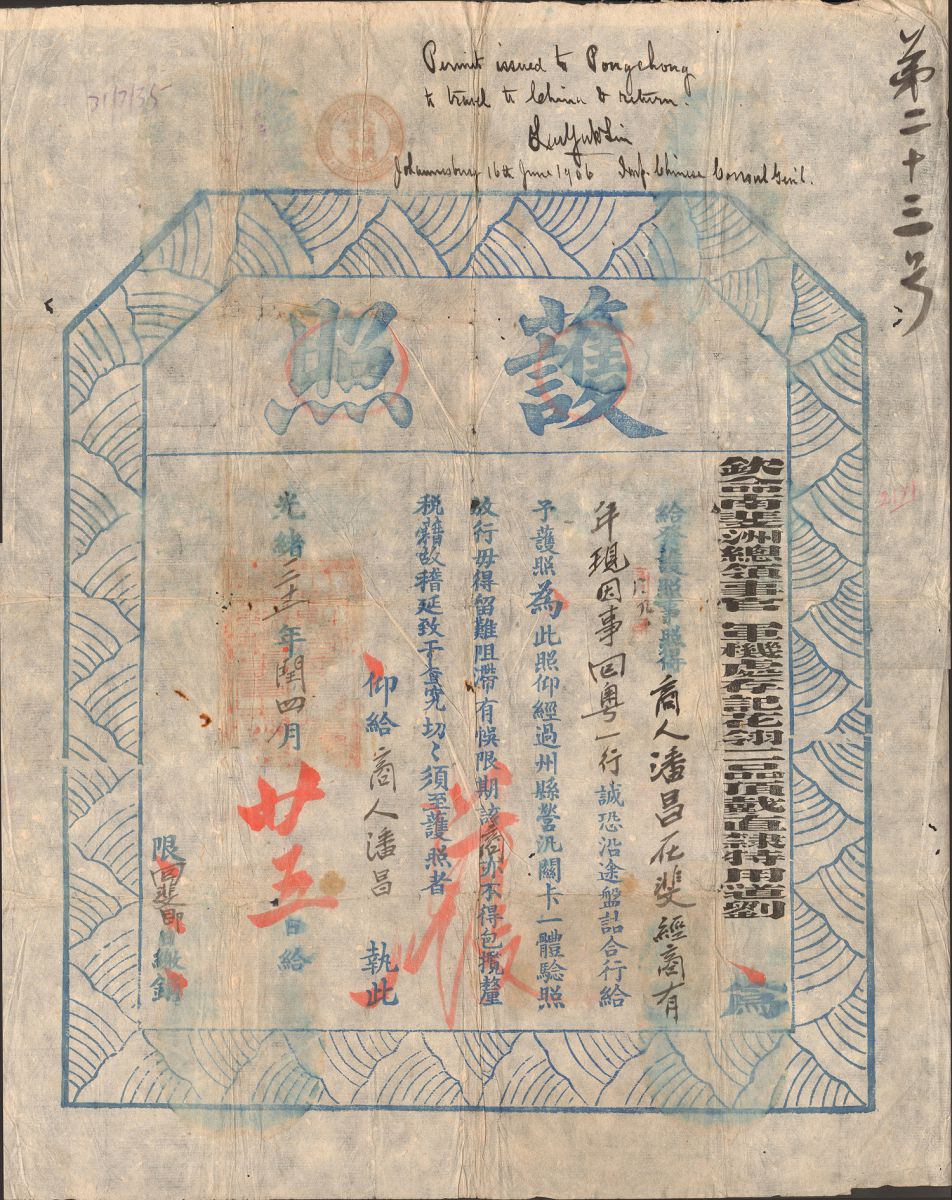 Permit issued to Pongchong
to travel to China & return.
Liu Yuk Lin
Johannesburg 16th June 1906 Imp. Chinese Consul Genl.
31/7/35
第二十三号
護照
欽命南斐洲總領事官 軍機處存記花翎二品頂戴直隸特用道劉 為
給發護照事照得 商人潘昌在斐經商有
年現因事回粵一行誠恐沿途盤詰合行給
予護照為此照仰經過州縣營汛關卡一體驗照
放行毋得留難阻滯有悞限期該商亦不得包攬釐
税藉故稽延致干查究切〻須至護照者
仰給 商人潘昌 執此
光緒三十二年閏四月廿五日給
限回斐即日繳銷